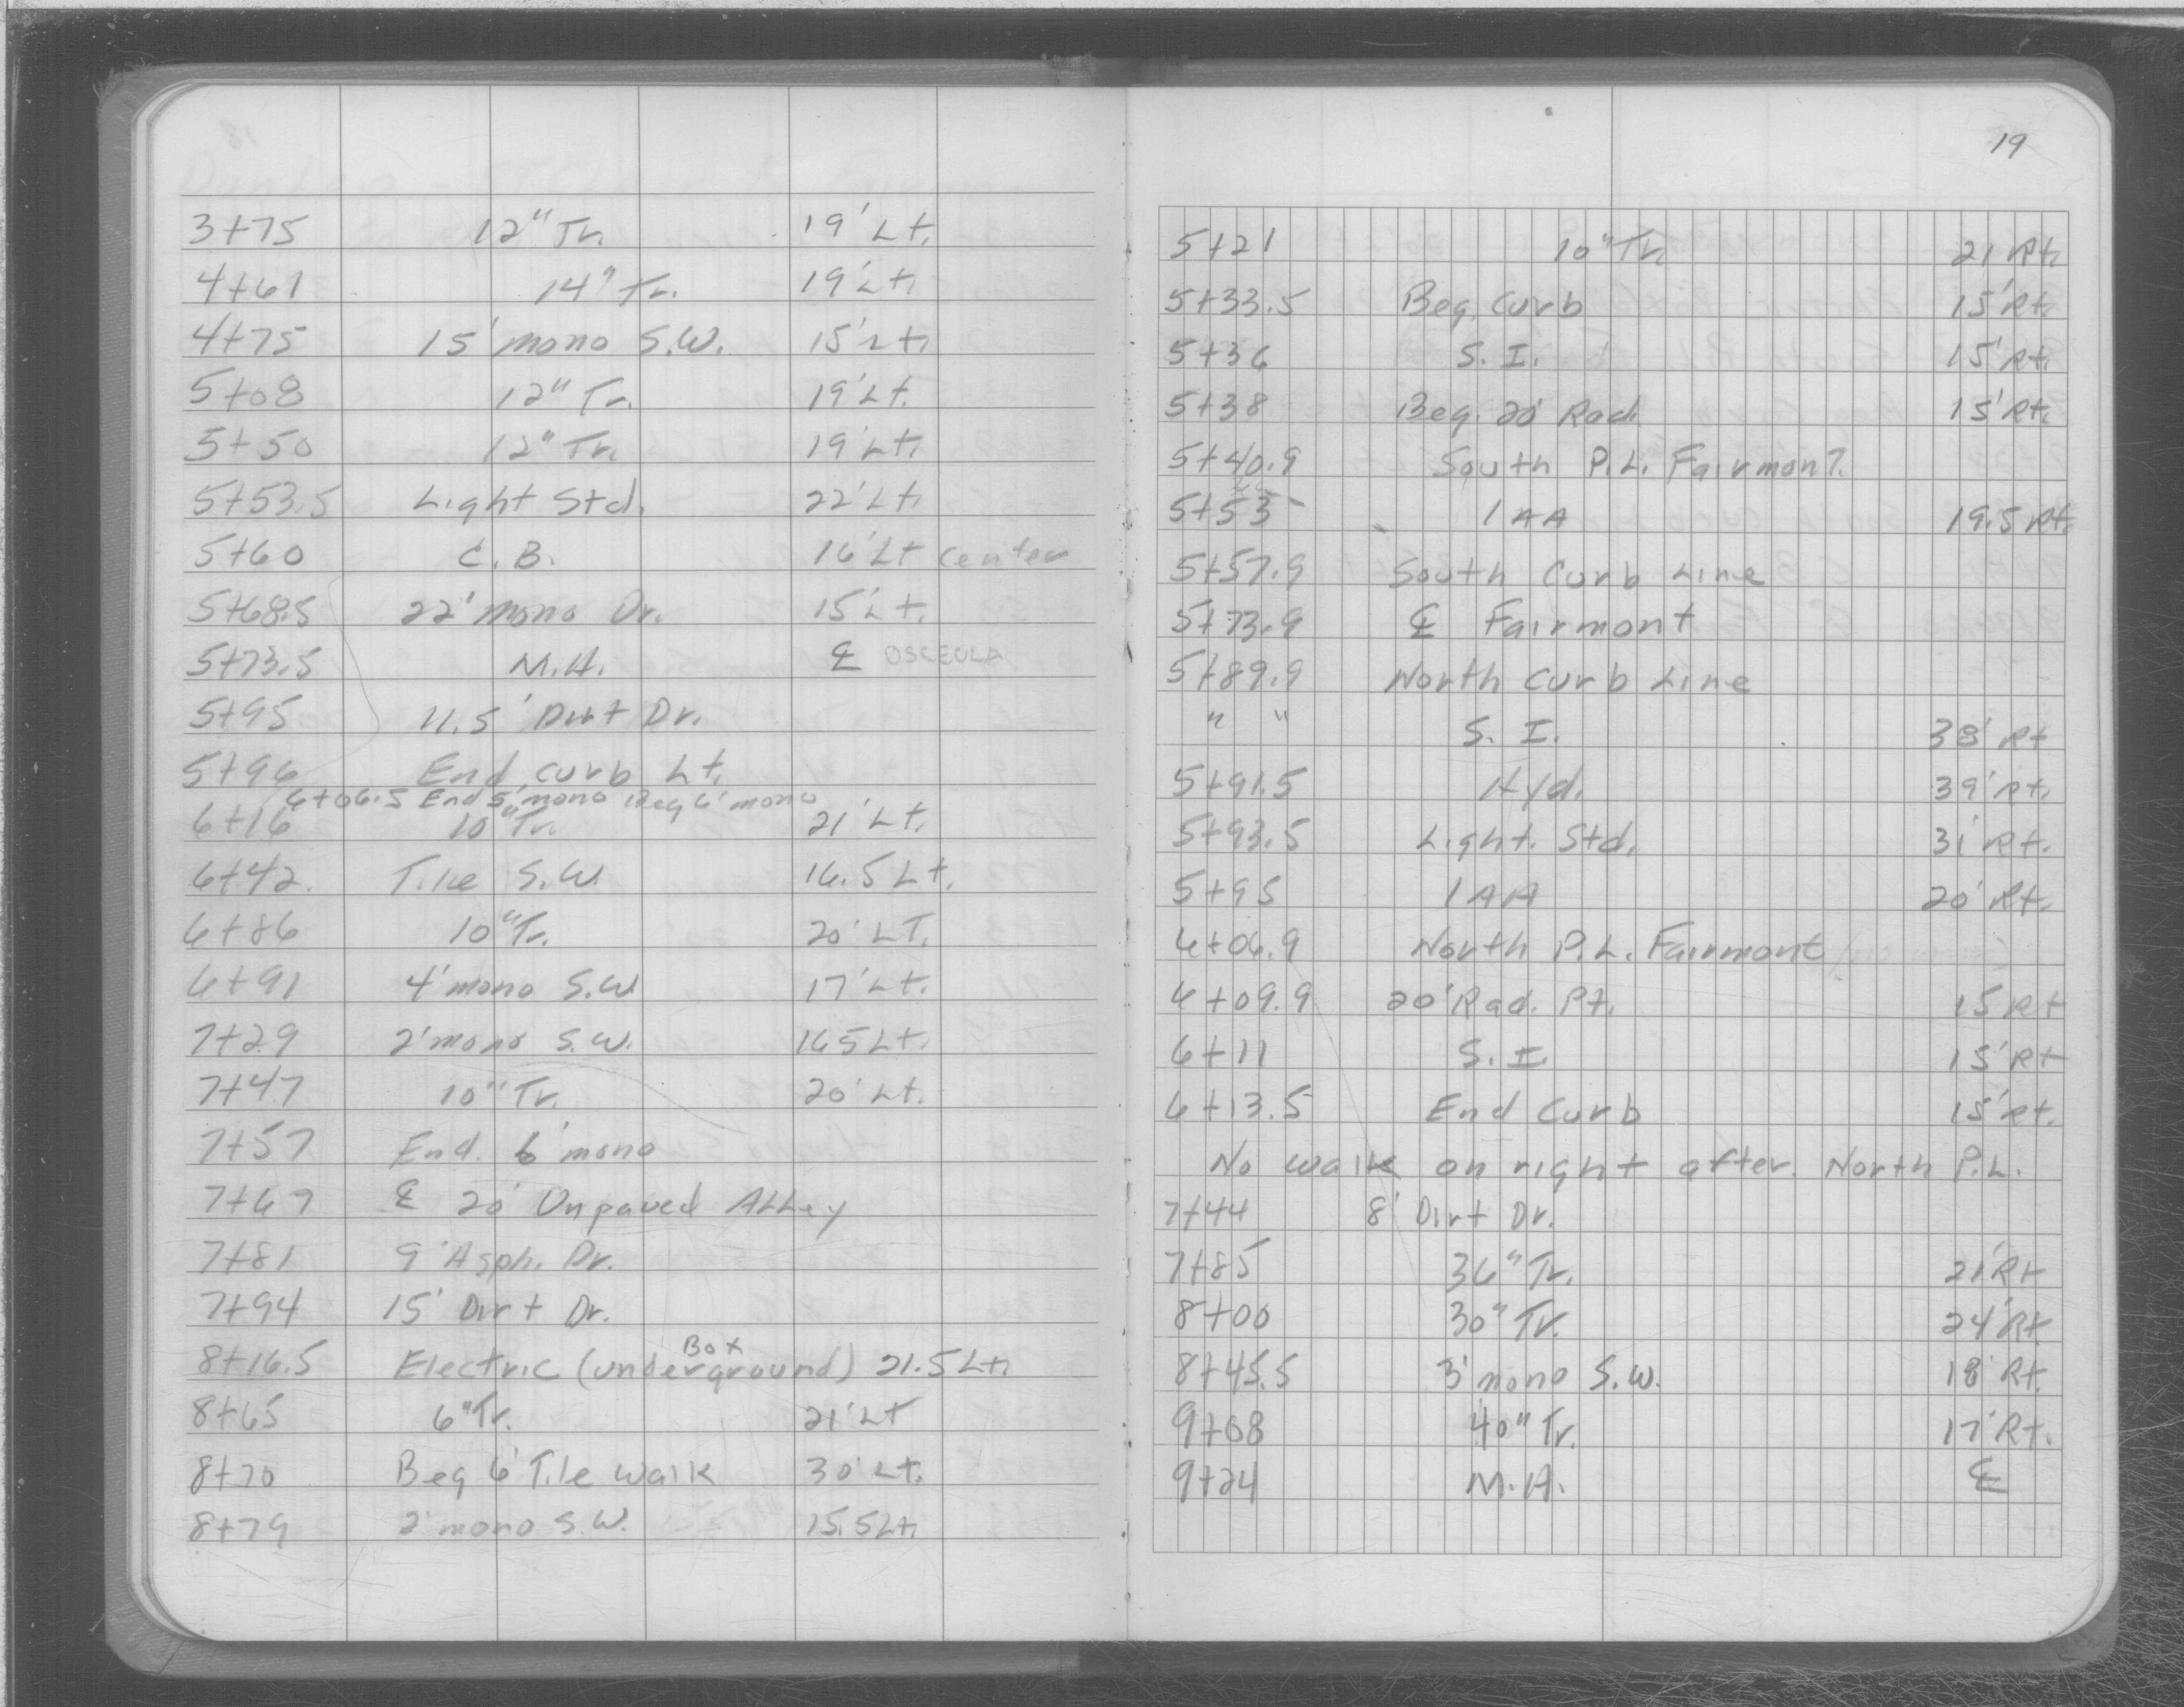 3+75 12" Tr. 19' Lt.
4+61 14" Tr. 19' Lt.
4+75 15' mono S.W. 15' Lt.
5+08 12" Tr. 19' Lt.
5+50 12" Tr. 19' Lt.
5+53.5 Light Std. 22' Lt.
5+60 C.B. 16' Lt center
5+68.5 22' mono Dr. 15' Lt.
5+73.5 M.H. ℄ OSCEOLA
5+95 11.5' Dirt Dr.
5+96 End curb Lt.
6+06.5 End 5' mono Beg 6' mono
6+16 10" Tr. 21' Lt.
6+42. Tile S.W. 16.5 Lt.
6+86 10" Tr. 20' LT.
6+91 4' mono S.W 17' Lt.
7+29 2' mono S.W. 16.5 Lt.
7+47 10" Tr. 20' Lt.
7+57 End. 6' mono
7+67 ℄ 20' Unpaved Alley
7+81 9' Asph. Dr.
7+94 15' Dirt Dr.
Box
8+16.5 Electric (underground) 21.5 Lt.
8+65 6" Tr. 21' Lt
8+70 Beg 6' Tile walk 30' Lt.
8+79 2' mono S.W. 15.5 Lt.
19
5+21 10" Tr. 21 Rt.
5+33.5 Beg. Curb 15' Rt.
5+36 S.I. 15' Rt.
5+38 Beg. 20' Rad. 15' Rt.
5+40.9 South P.L. Fairmont.
5+53 1AA 19.5 Rt.
5+57.9 South Curb Line
5+73.9 ℄ Fairmont
5+89.9 North Curb Line
" " S.I. 38' Rt
5+91.5 Hyd. 39' Rt.
5+93.5 Light. Std. 31' Rt.
5+95 1AA 20' Rt.
6+06.9 North P.L. Fairmont
6+09.9 20' Rad. Pt. 15 Rt
6+11 S.I. 15' Rt
6+13.5 End Curb 15' Rt.
No walk on right after. North P.L.
7+44 8' Dirt Dr.
7+85 36" Tr. 21' Rt
8+00 30" Tr. 24' Rt
8+45.5 3' mono S.W. 18' Rt.
9+08 40" Tr. 17' Rt.
9+24 M.H. ℄